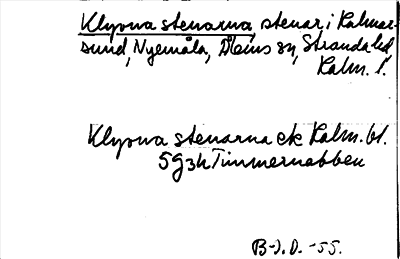 Klyvna stenarna, stenar i Kalmar-
sund, Nyemåla, Ålems sn, Stranda hd
Kalm. l.
Klyvna stenarna ek Kalm. bl.
5g3h Timmernabben
B-J.D. -55.